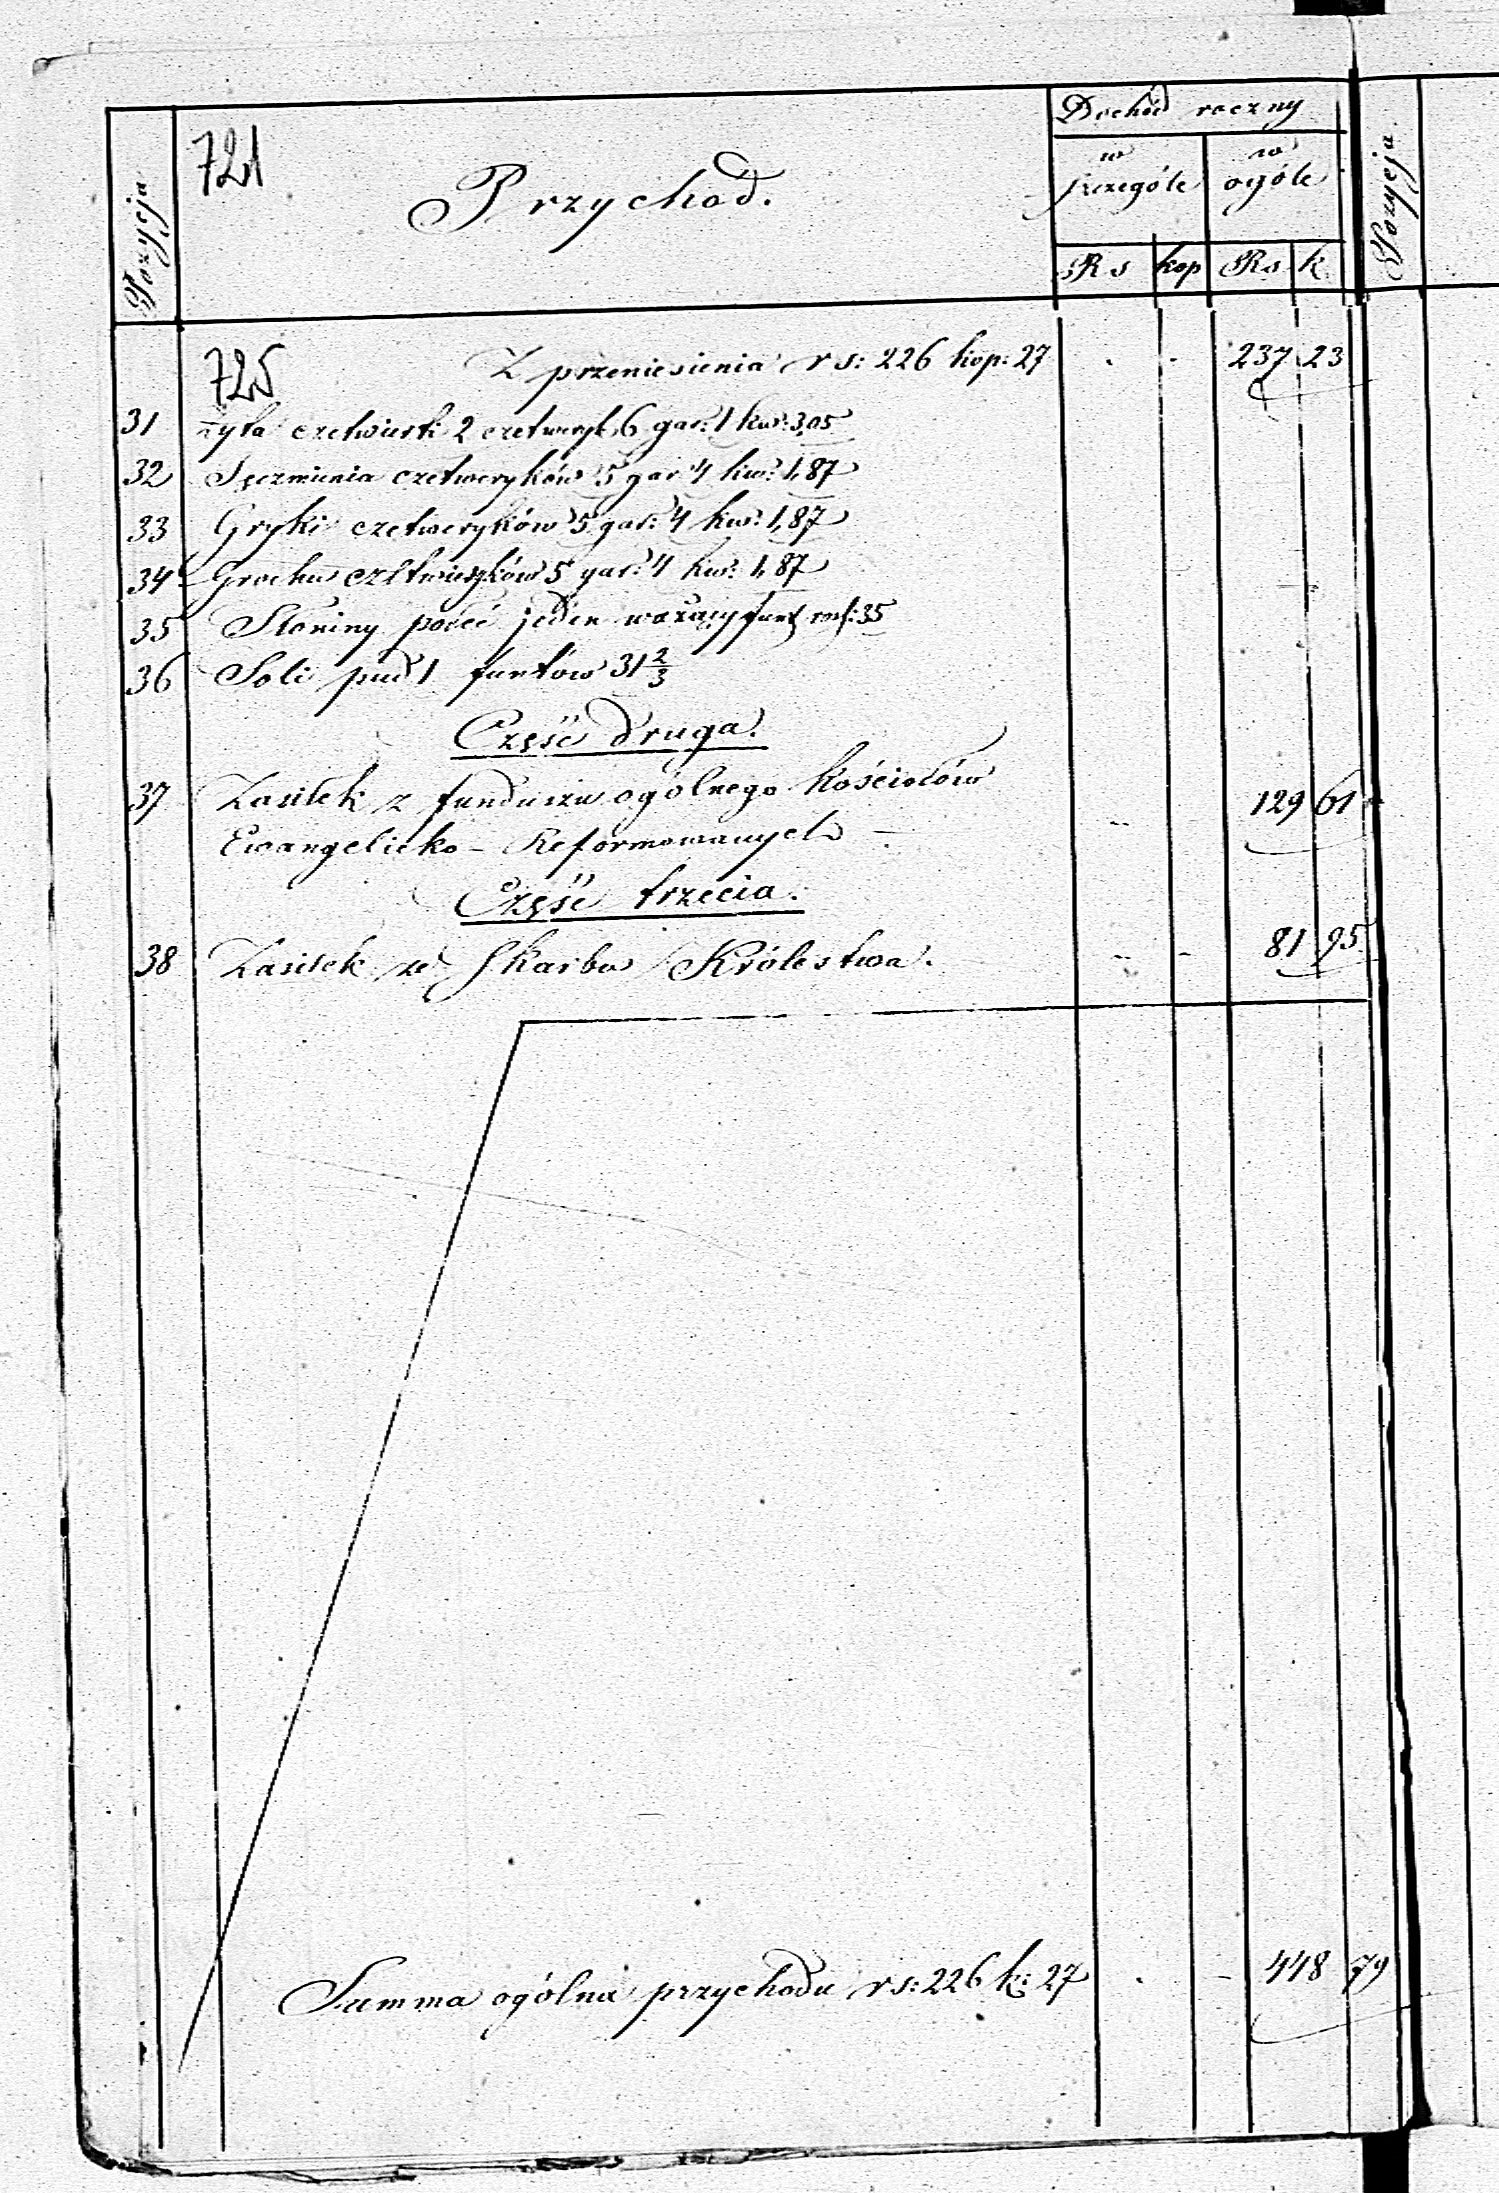 Dochód roczny
721
Pozycja
Przychod.
w szczególe
w ogóle
Pozycja
Rs kop Rs k
725 Z przeniesienia rs: 226 kop: 27 . . 237 23
31 żyta czetwierti 2 czetweryk. 6 gar: 1 kw: 3,05
32 Jęczmienia czetweryków 5 gar 4 kw: 1,87
33 Gryki czetweryków 5 gar: 4 kw: 1,87
34 Grochu czetweryków 5 gar: 4 kw: 1,87
35 Słoniny połeć jeden ważący funt. ros: 35
36 Soli pud 1 funtów 31 2/3
Część druga.
37 Zasiłek z funduszu ogólnego kościołów
Ewangelicko - Reformowanych - 129 61
Część trzecia.
38 Zasiłek ze Skarbu Królestwa. 81 95
Summa ogólna przychodu rs: 226 k: 27 . - 448 79